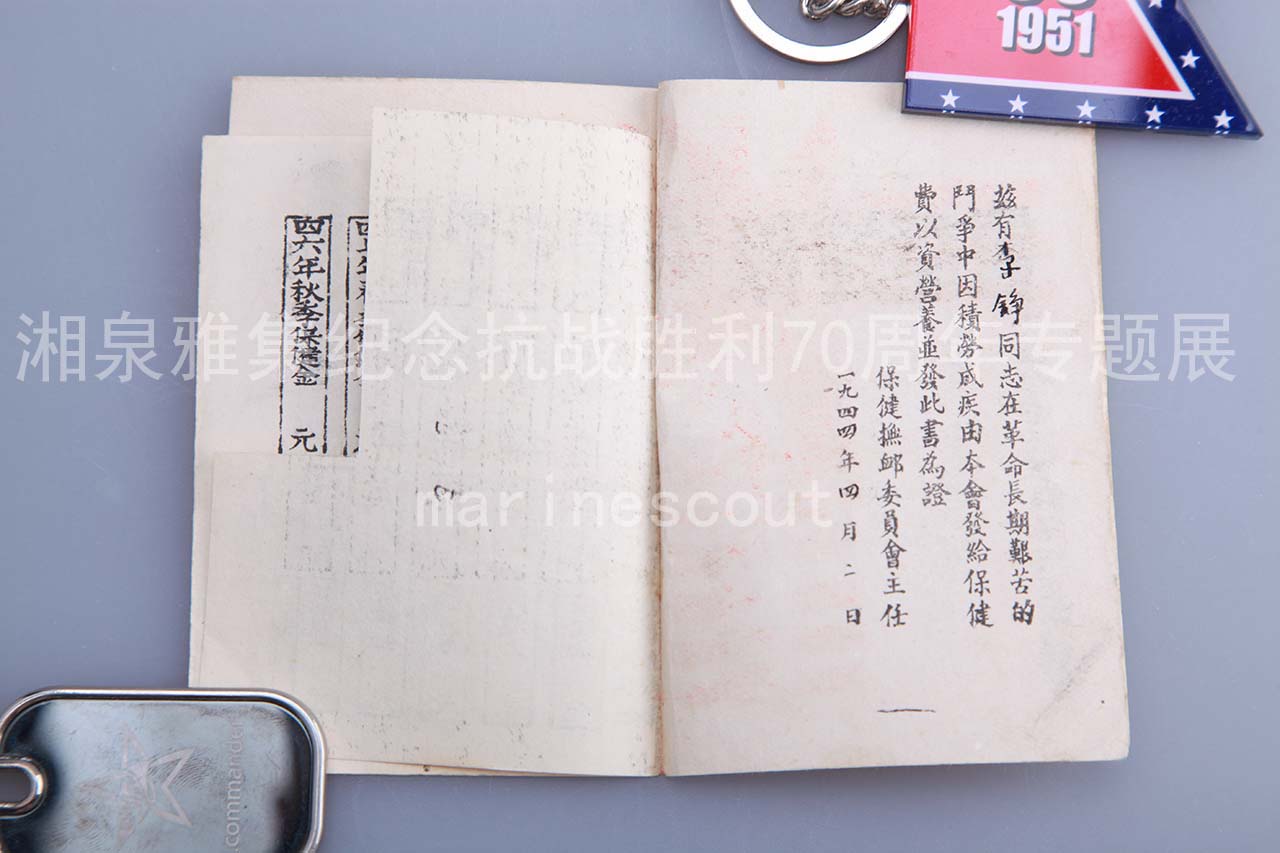 1951
茲有李錚同志在革命長期艱苦的
鬥爭中因積勞成疾由本會發給保健
費以資營養並發此書為證
保健撫卹委員會主任
一九四四年四月二日
四六年秋季保健金 元
湘泉雅集纪念抗战胜利70周年专题展
marinescout
.commando